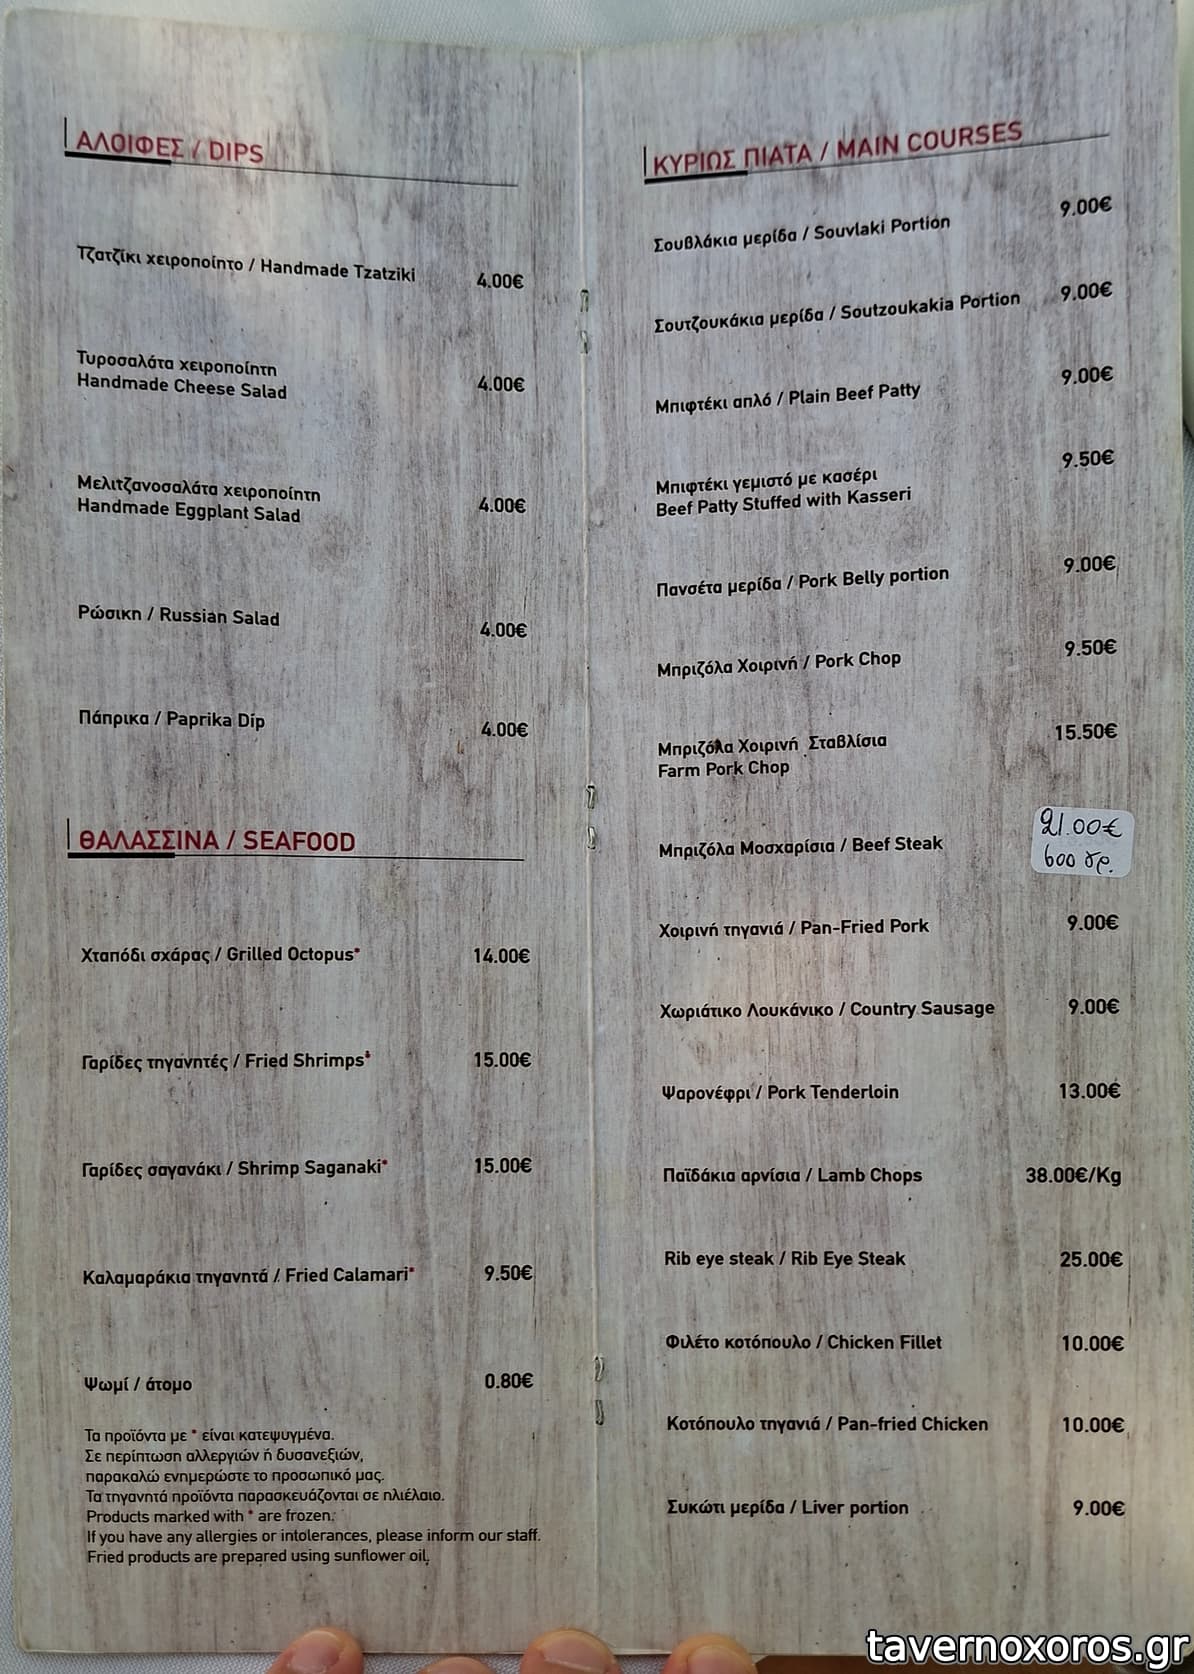 ΑΛΟΙΦΕΣ / DIPS
Τζατζίκι χειροποίητο / Handmade Tzatziki 4.00€
Τυροσαλάτα χειροποίητη
Handmade Cheese Salad 4.00€
Μελιτζανοσαλάτα χειροποίητη
Handmade Eggplant Salad 4.00€
Ρώσικη / Russian Salad 4.00€
Πάπρικα / Paprika Dip 4.00€
ΘΑΛΑΣΣΙΝΑ / SEAFOOD
Χταπόδι σχάρας / Grilled Octopus* 14.00€
Γαρίδες τηγανητές / Fried Shrimps* 15.00€
Γαρίδες σαγανάκι / Shrimp Saganaki* 15.00€
Καλαμαράκια τηγανητά / Fried Calamari* 9.50€
Ψωμί / άτομο 0.80€
Τα προϊόντα με * είναι κατεψυγμένα.
Σε περίπτωση αλλεργιών ή δυσανεξιών,
παρακαλώ ενημερώστε το προσωπικό μας.
Τα τηγανητά προϊόντα παρασκευάζονται σε ηλιέλαιο.
Products marked with * are frozen.
If you have any allergies or intolerances, please inform our staff.
Fried products are prepared using sunflower oil.
ΚΥΡΙΩΣ ΠΙΑΤΑ / MAIN COURSES
Σουβλάκια μερίδα / Souvlaki Portion 9.00€
Σουτζουκάκια μερίδα / Soutzoukakia Portion 9.00€
Μπιφτέκι απλό / Plain Beef Patty 9.00€
Μπιφτέκι γεμιστό με κασέρι 9.50€
Beef Patty Stuffed with Kasseri
Πανσέτα μερίδα / Pork Belly portion 9.00€
Μπριζόλα Χοιρινή / Pork Chop 9.50€
Μπριζόλα Χοιρινή Σταβλίσια 15.50€
Farm Pork Chop
Μπριζόλα Μοσχαρίσια / Beef Steak 21.00€
600 γρ.
Χοιρινή τηγανιά / Pan-Fried Pork 9.00€
Χωριάτικο Λουκάνικο / Country Sausage 9.00€
Ψαρονέφρι / Pork Tenderloin 13.00€
Παϊδάκια αρνίσια / Lamb Chops 38.00€/Kg
Rib eye steak / Rib Eye Steak 25.00€
Φιλέτο κοτόπουλο / Chicken Fillet 10.00€
Κοτόπουλο τηγανιά / Pan-fried Chicken 10.00€
Συκώτι μερίδα / Liver portion 9.00€
tavernoxoros.gr